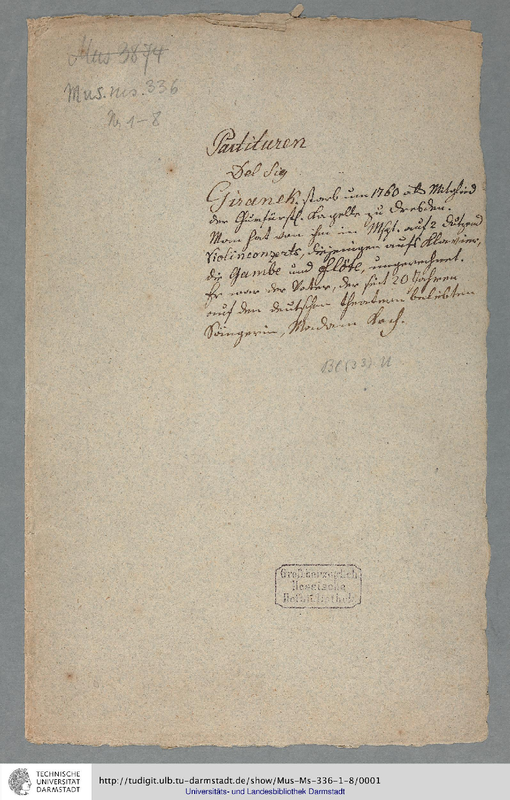 Mus 3874
Mus. ms. 336
Nr. 1–8
Partituren
Del Sig
Giranek, starb um 1760 als Mitglied
der Churfürstl. Kapelle zu Dresden.
Man hat von ihm im Mspt. auf 2 Dutzend
Violinconzerts, diejenigen aufs Klavier,
die Gambe und Flöte, ungerechnet.
Er war der Vater, der seit 20 Jahren
auf den deutschen Theatern beliebten
Sängerin, Madam Koch.
Großherzoglich
Hessische
Hofbibliothek
TECHNISCHE
UNIVERSITÄT
DARMSTADT
http://tudigit.ulb.tu-darmstadt.de/show/Mus-Ms-336-1-8/0001
Universitäts- und Landesbibliothek Darmstadt